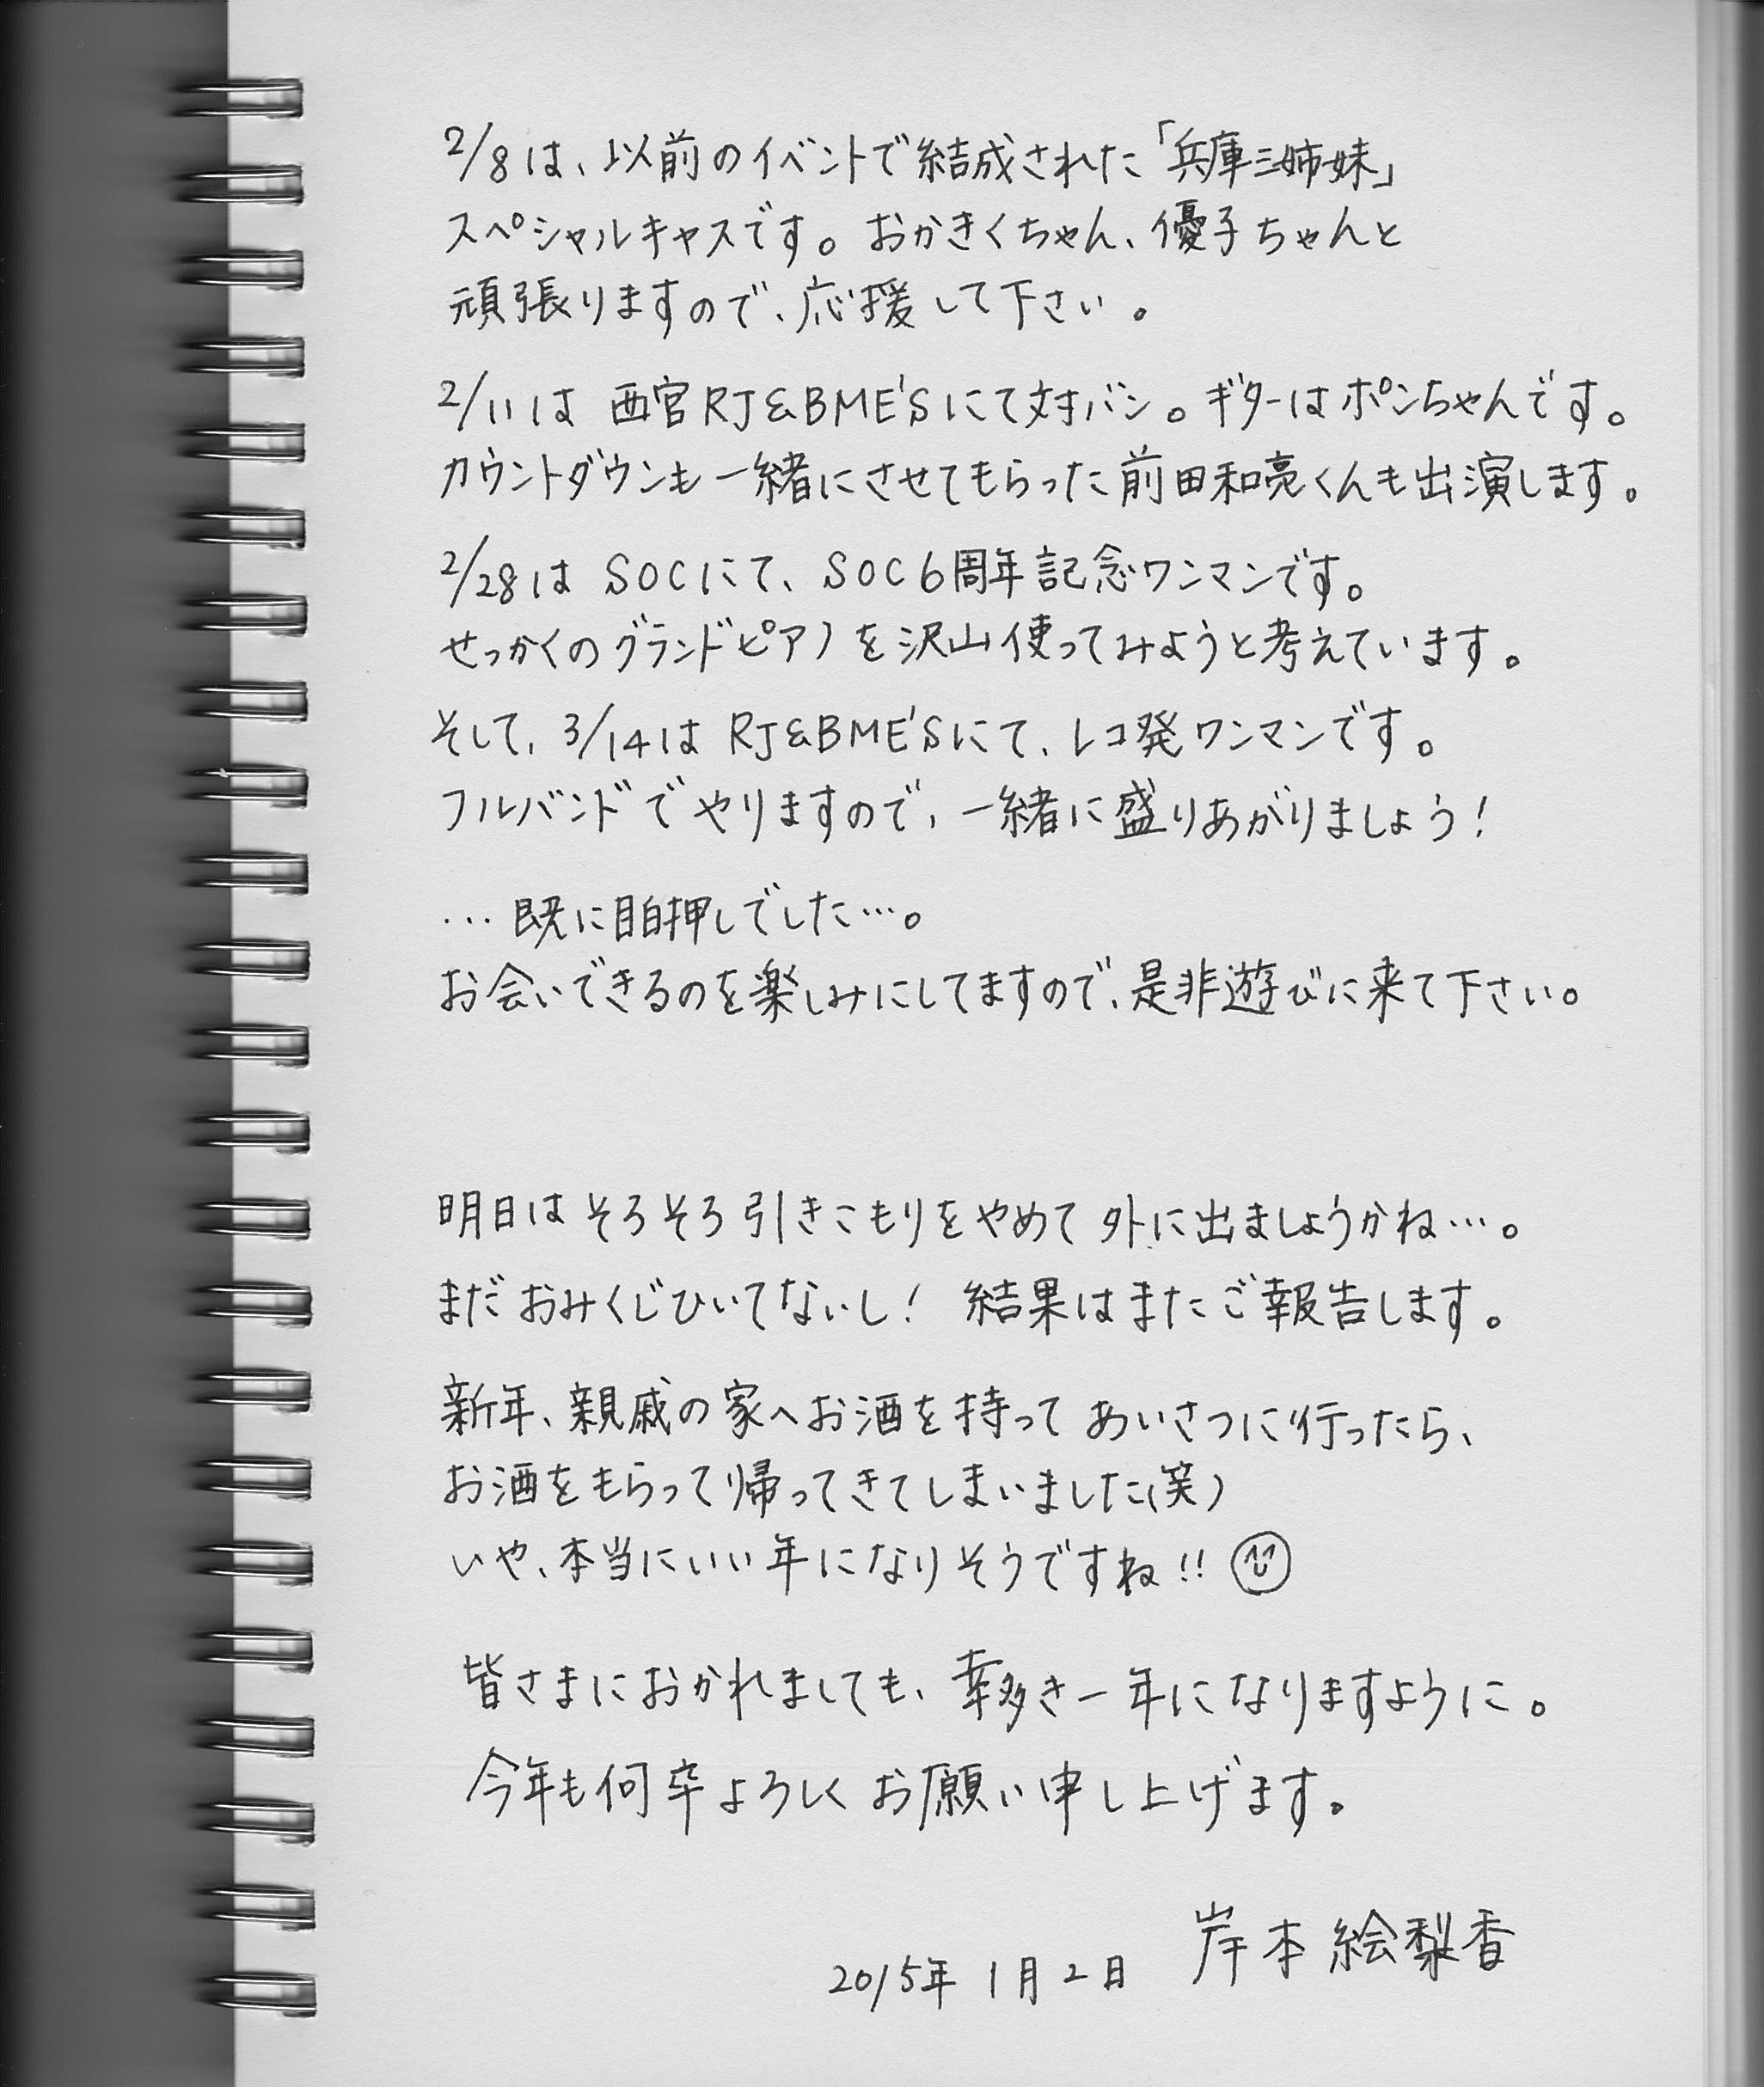 2/8は、以前のイベントで結成された「兵庫三姉妹」
スペシャルキャスです。おかきくちゃん、優子ちゃんと
頑張りますので、応援して下さい。
2/11は 西宮RJ&BME'Sにて対バン。ギターはポンちゃんです。
カウントダウンも一緒にさせてもらった前田和亮くんも出演します。
2/28は SOCにて、SOC6周年記念ワンマンです。
せっかくのグランドピアノを沢山使ってみようと考えています。
そして、3/14は RJ&BME'Sにて、レコ発ワンマンです。
フルバンドでやりますので、一緒に盛りあがりましょう!
…既に目白押しでした…。
お会いできるのを楽しみにしてますので、是非遊びに来て下さい。
明日はそろそろ引きこもりをやめて外に出ましょうかね…。
まだおみくじひいてないし! 結果はまたご報告します。
新年、親戚の家へお酒を持って あいさつに行ったら、
お酒をもらって帰ってきてしまいました(笑)
いや、本当にいい年になりそうですね!!
皆さまにおかれましても、幸多き一年になりますように。
今年も何卒よろしくお願い申し上げます。
2015年 1月2日 岸本絵梨香